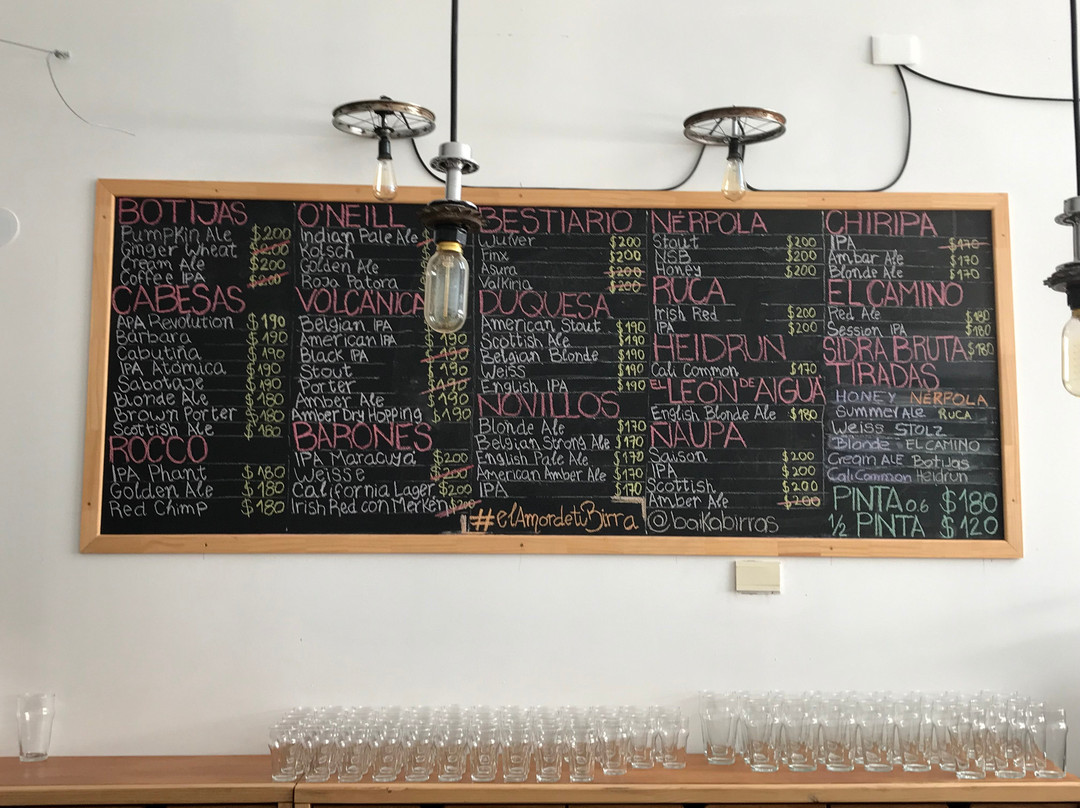 BOTIJAS
Pumpkin Ale $200
Ginger Wheat $200
Cream Ale $200
Coffee IPA $200
CABESAS
APA Revolution $190
Bárbara $190
Cabutiña $190
IPA Atómica $190
Sabotaje $190
Blonde Ale $180
Brown Porter $180
Scottish Ale $180
ROCCO
IPA Phant $180
Golden Ale $180
Red Chimp $180
O'NEILL
Indian Pale Ale
Kolsch
Golden Ale
Roja Patora
VOLCÁNICA
Belgian IPA
American IPA $190
Black IPA $190
Stout $190
Porter $190
Amber Ale $190
Amber Dry Hopping $190
BARONES
IPA Maracuya $200
Weisse $200
California Lager $200
Irish Red con Merkén $200
BESTIARIO
Wulver $200
Jinx $200
Asura $200
Valkiria $200
DUQUESA
American Stout $190
Scottish Ale $190
Belgian Blonde $190
Weiss $190
English IPA $190
NOVILLOS
Blonde Ale $170
Belgian Strong Ale $170
English Pale Ale $170
American Amber Ale $170
IPA $170
#elAmordetuBirra
NÉRPOLA
Stout $200
NSB $200
Honey $200
RUCA
Irish Red $200
IPA $200
HEIDRUN
Cali Common $170
EL LEÓN DE AIGUÁ
English Blonde Ale $180
ÑAUPA
Saison $200
IPA $200
Scottish $200
Amber Ale $200
@baikabirras
CHIRIPA
IPA $170
Ambar Ale $170
Blonde Ale $170
EL CAMINO
Red Ale $180
Session IPA $180
SIDRA BRUTA $180
TIRADAS
HONEY NÉRPOLA
Summer Ale RUCA
Weiss STOLZ
Blonde EL CAMINO
Cream ALE Botijas
Cali Common Heidrun
PINTA 0.6 $180
1/2 PINTA $120